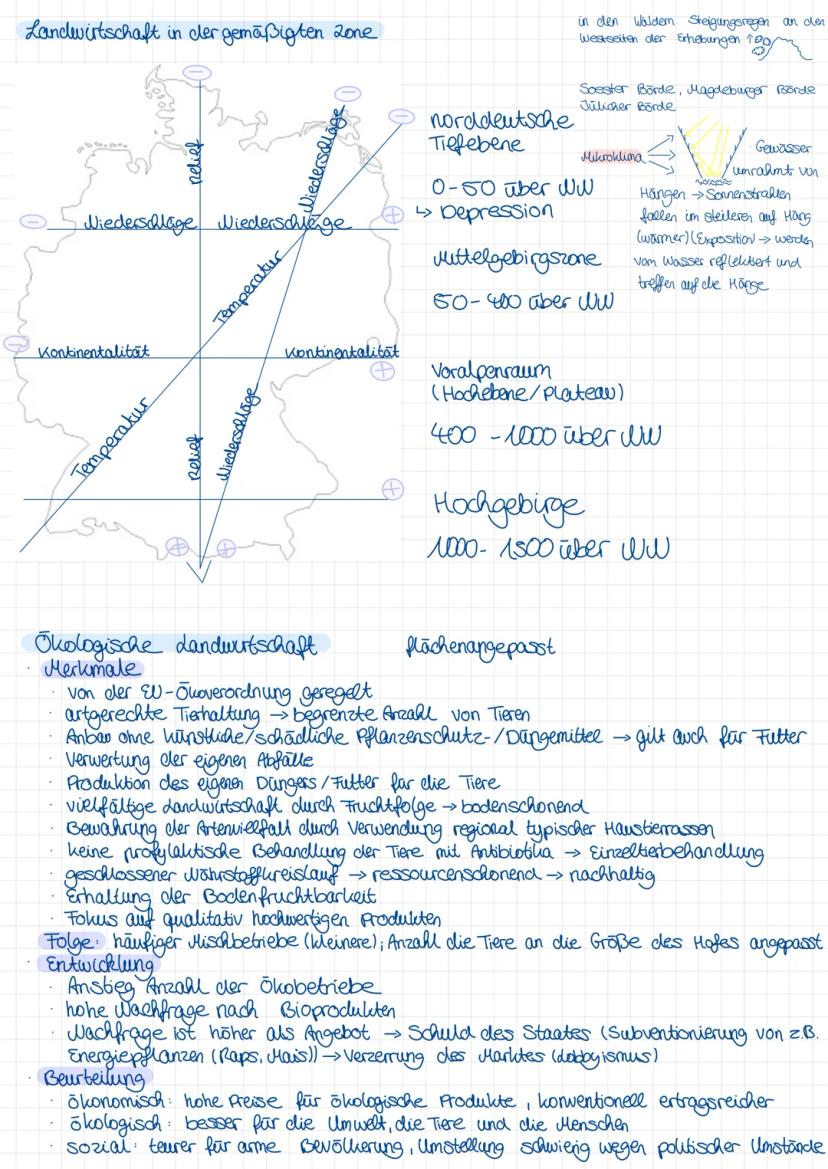 Landwirtschaft in der gemäßigten Zone
in den Wäldern Steigungsregen an den
Westseiten der Erhebungen ↑
Soester Börde, Magdeburger Börde
Jülicher Börde
Mikroklima
Gewässer
umrahmt von
Hängen → Sonnenstrahlen
fallen im steileren auf Hang
(wärmer) (Exposition → werden
vom Wasser reflektiert und
treffen auf die Hänge
Relief
Niederschläge
Niederschläge Niederschläge
Temperatur
Kontinentalität Kontinentalität
Temperatur
Relief
Niederschläge
norddeutsche
Tiefebene
0-50 über NN
↳ Depression
Mittelgebirgszone
50-400 über NN
Voralpenraum
(Hochebene/Plateau)
400 - 1000 über NN
Hochgebirge
1000- 1500 über NN
Ökologische Landwirtschaft flächenangepasst
· Merkmale
· von der EU-Ökoverordnung geregelt
· artgerechte Tierhaltung → begrenzte Anzahl von Tieren
· Anbau ohne künstliche/schädliche Pflanzenschutz-/Düngemittel → gilt auch für Futter
· Verwertung der eigenen Abfälle
· Produktion des eigenen Düngers/Futter für die Tiere
· vielfältige Landwirtschaft durch Fruchtfolge → bodenschonend
· Bewahrung der Artenvielfalt durch Verwendung regional typischer Haustierrassen
· keine profylaktische Behandlung der Tiere mit Antibiotika → Einzeltierbehandlung
· geschlossener Nährstoffkreislauf → ressourcenschonend → nachhaltig
· Erhaltung der Bodenfruchtbarkeit
· Fokus auf qualitativ hochwertigen Produkten
Folge: häufiger Mischbetriebe (kleinere); Anzahl die Tiere an die Größe des Hofes angepasst
· Entwicklung
· Anstieg Anzahl der Ökobetriebe
· hohe Nachfrage nach Bioprodukten
· Nachfrage ist höher als Angebot → Schuld des Staates (Subventionierung von z.B.
Energiepflanzen (Raps, Mais)) → Verzerrung des Marktes (Lobbyismus)
· Beurteilung
· ökonomisch: hohe Preise für ökologische Produkte, konventionell ertragsreicher
· ökologisch: besser für die Umwelt, die Tiere und die Menschen
· sozial: teurer für arme Bevölkerung, Umstellung schwierig wegen politischer Umstände